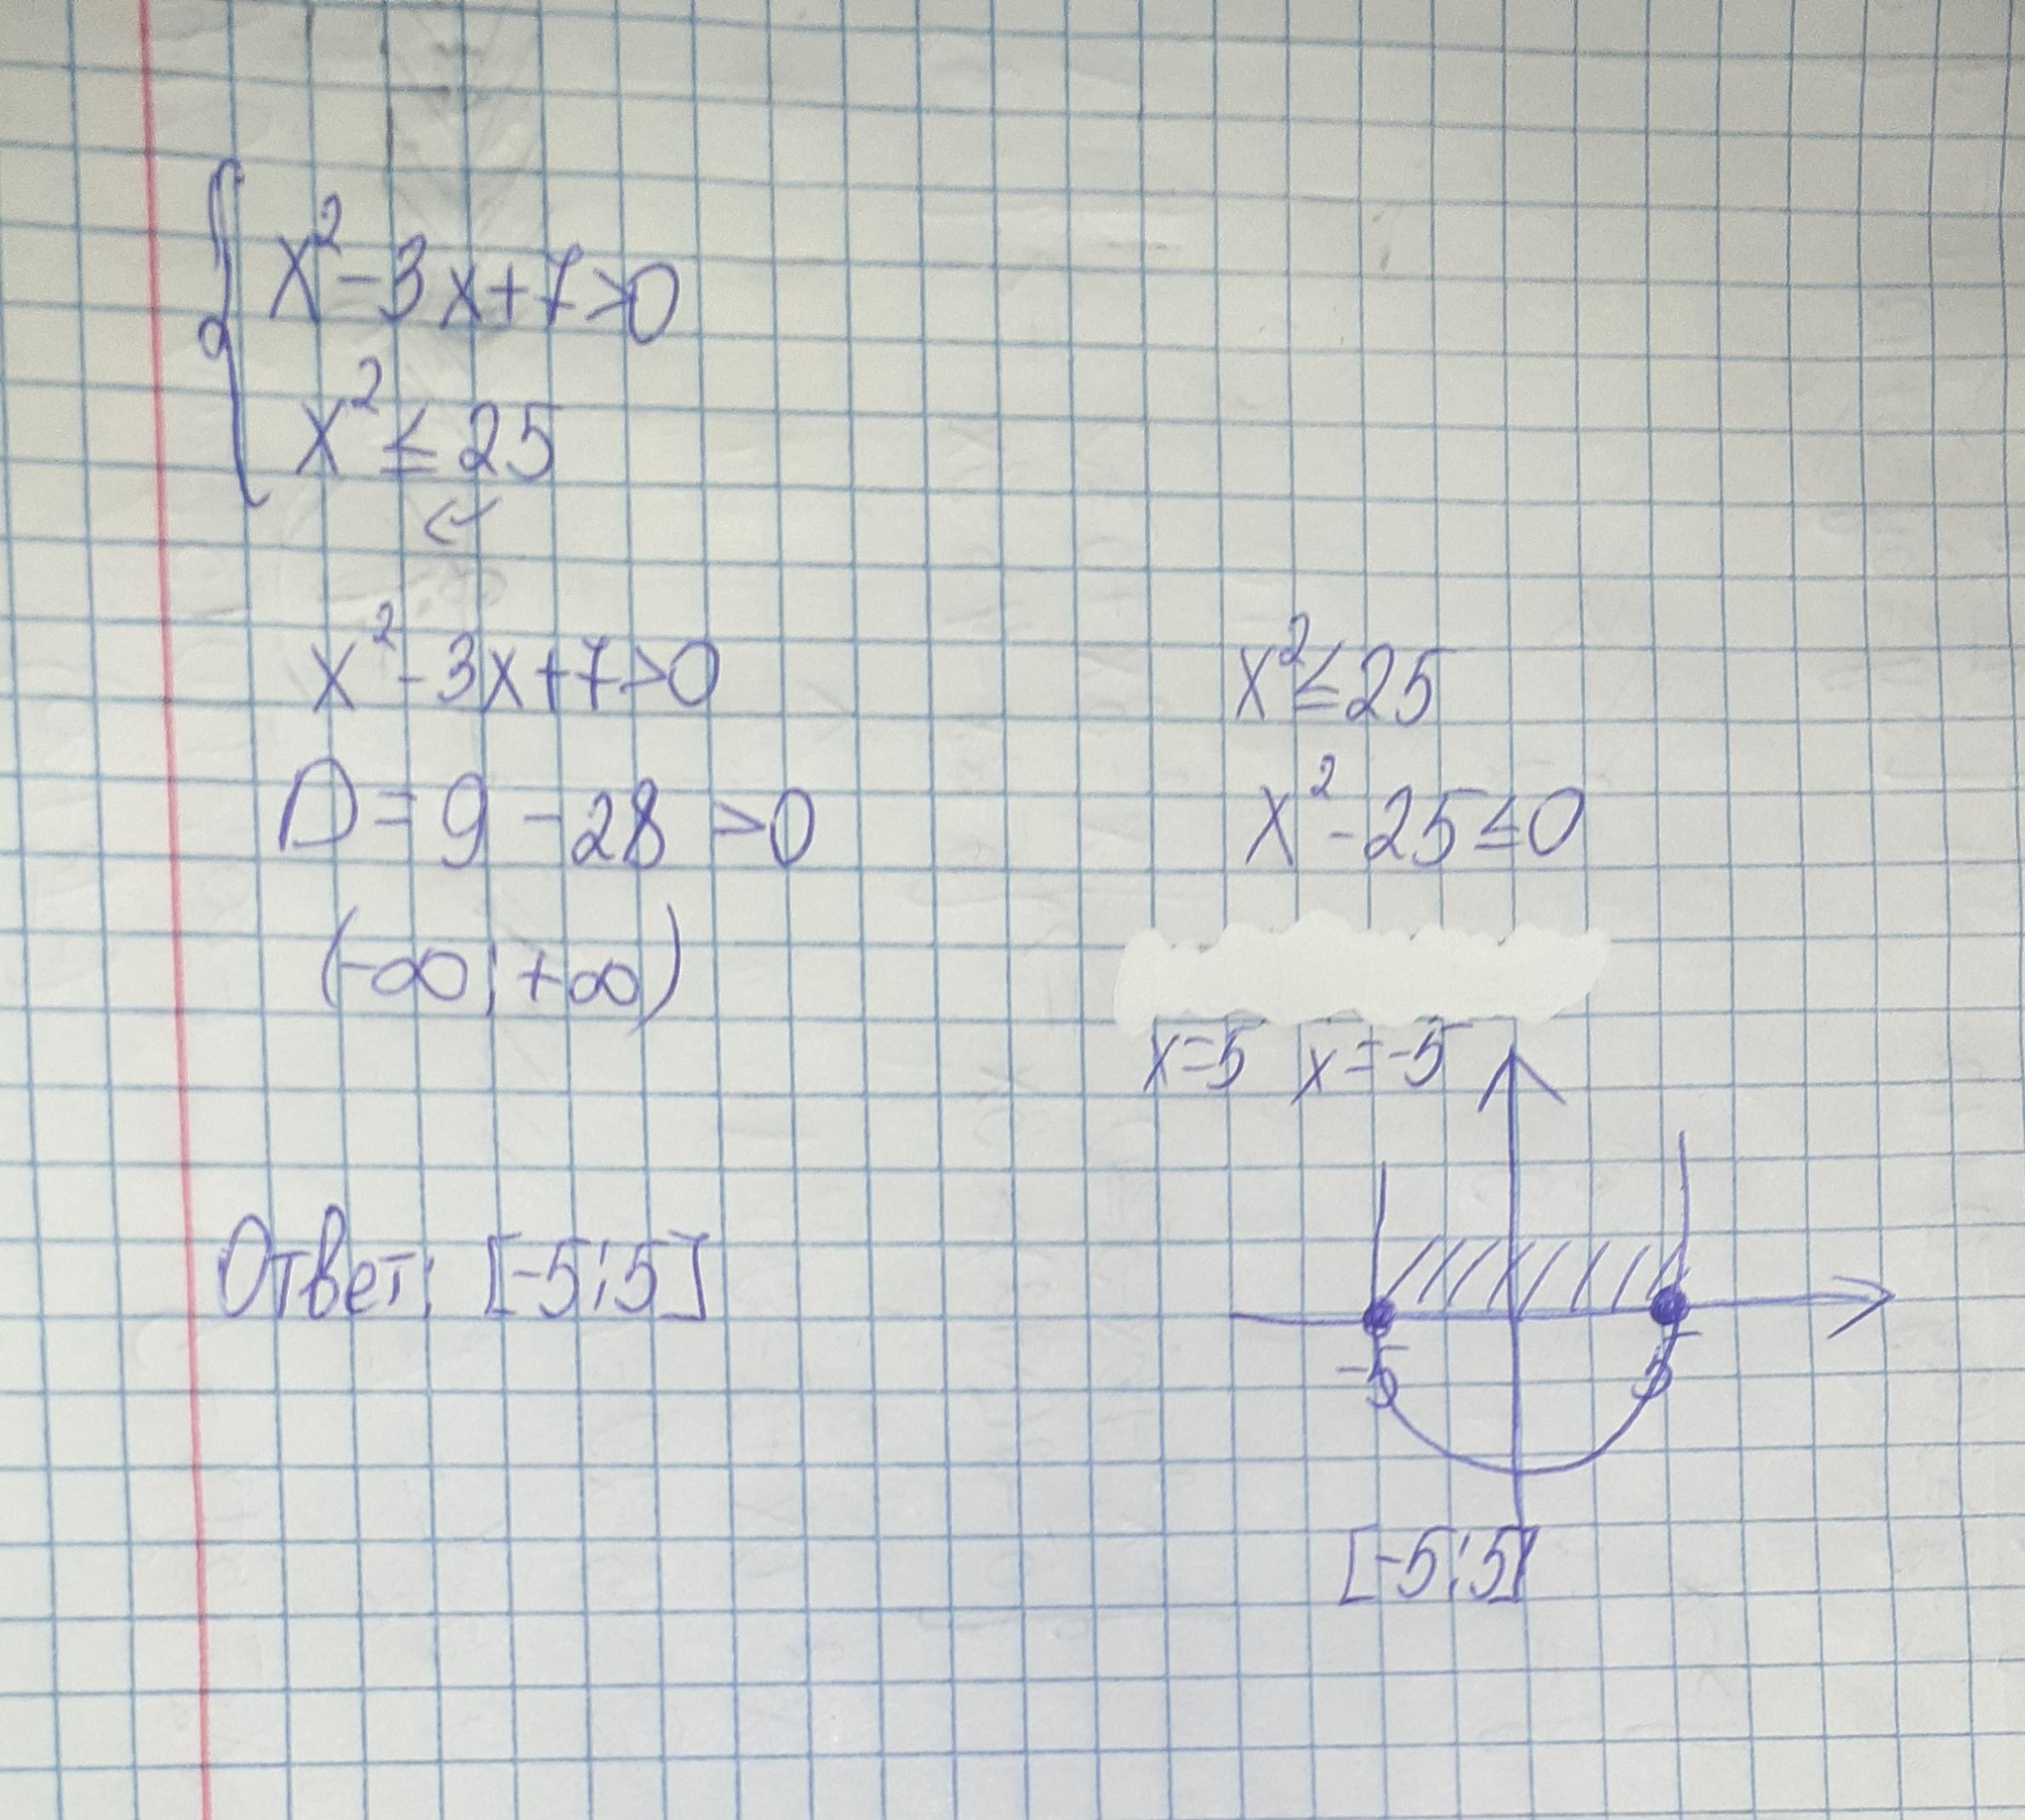 x²-3x+7>0
x²≤25
x²-3x+7>0
D=9-28>0
(-∞;+∞)
x²≤25
x²-25≤0
x=5 x=-5
-5 5
[-5;5]
Ответ: [-5;5]